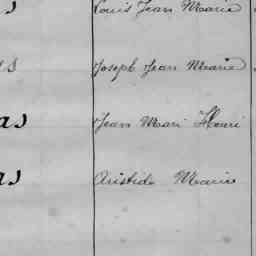 Louis Jean Marie
Joseph Jean Marie
Jean Mari Henri
as Aristide Marie